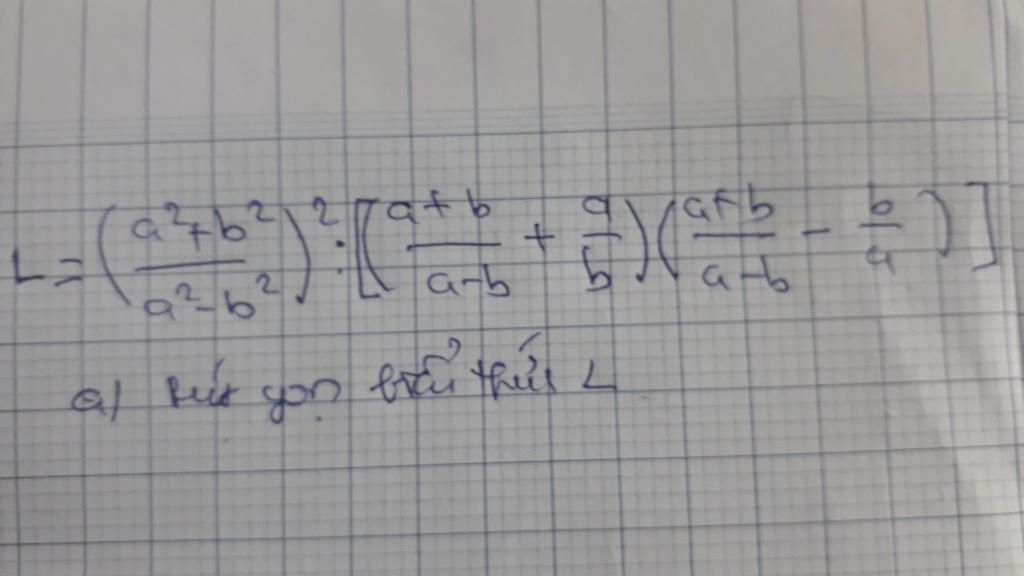 L = (\frac{a²+b²}{a²-b²})² : [(\frac{a+b}{a-b} + \frac{a}{b})(\frac{a+b}{a-b} - \frac{b}{a})]
a) Rút gọn biểu thức L